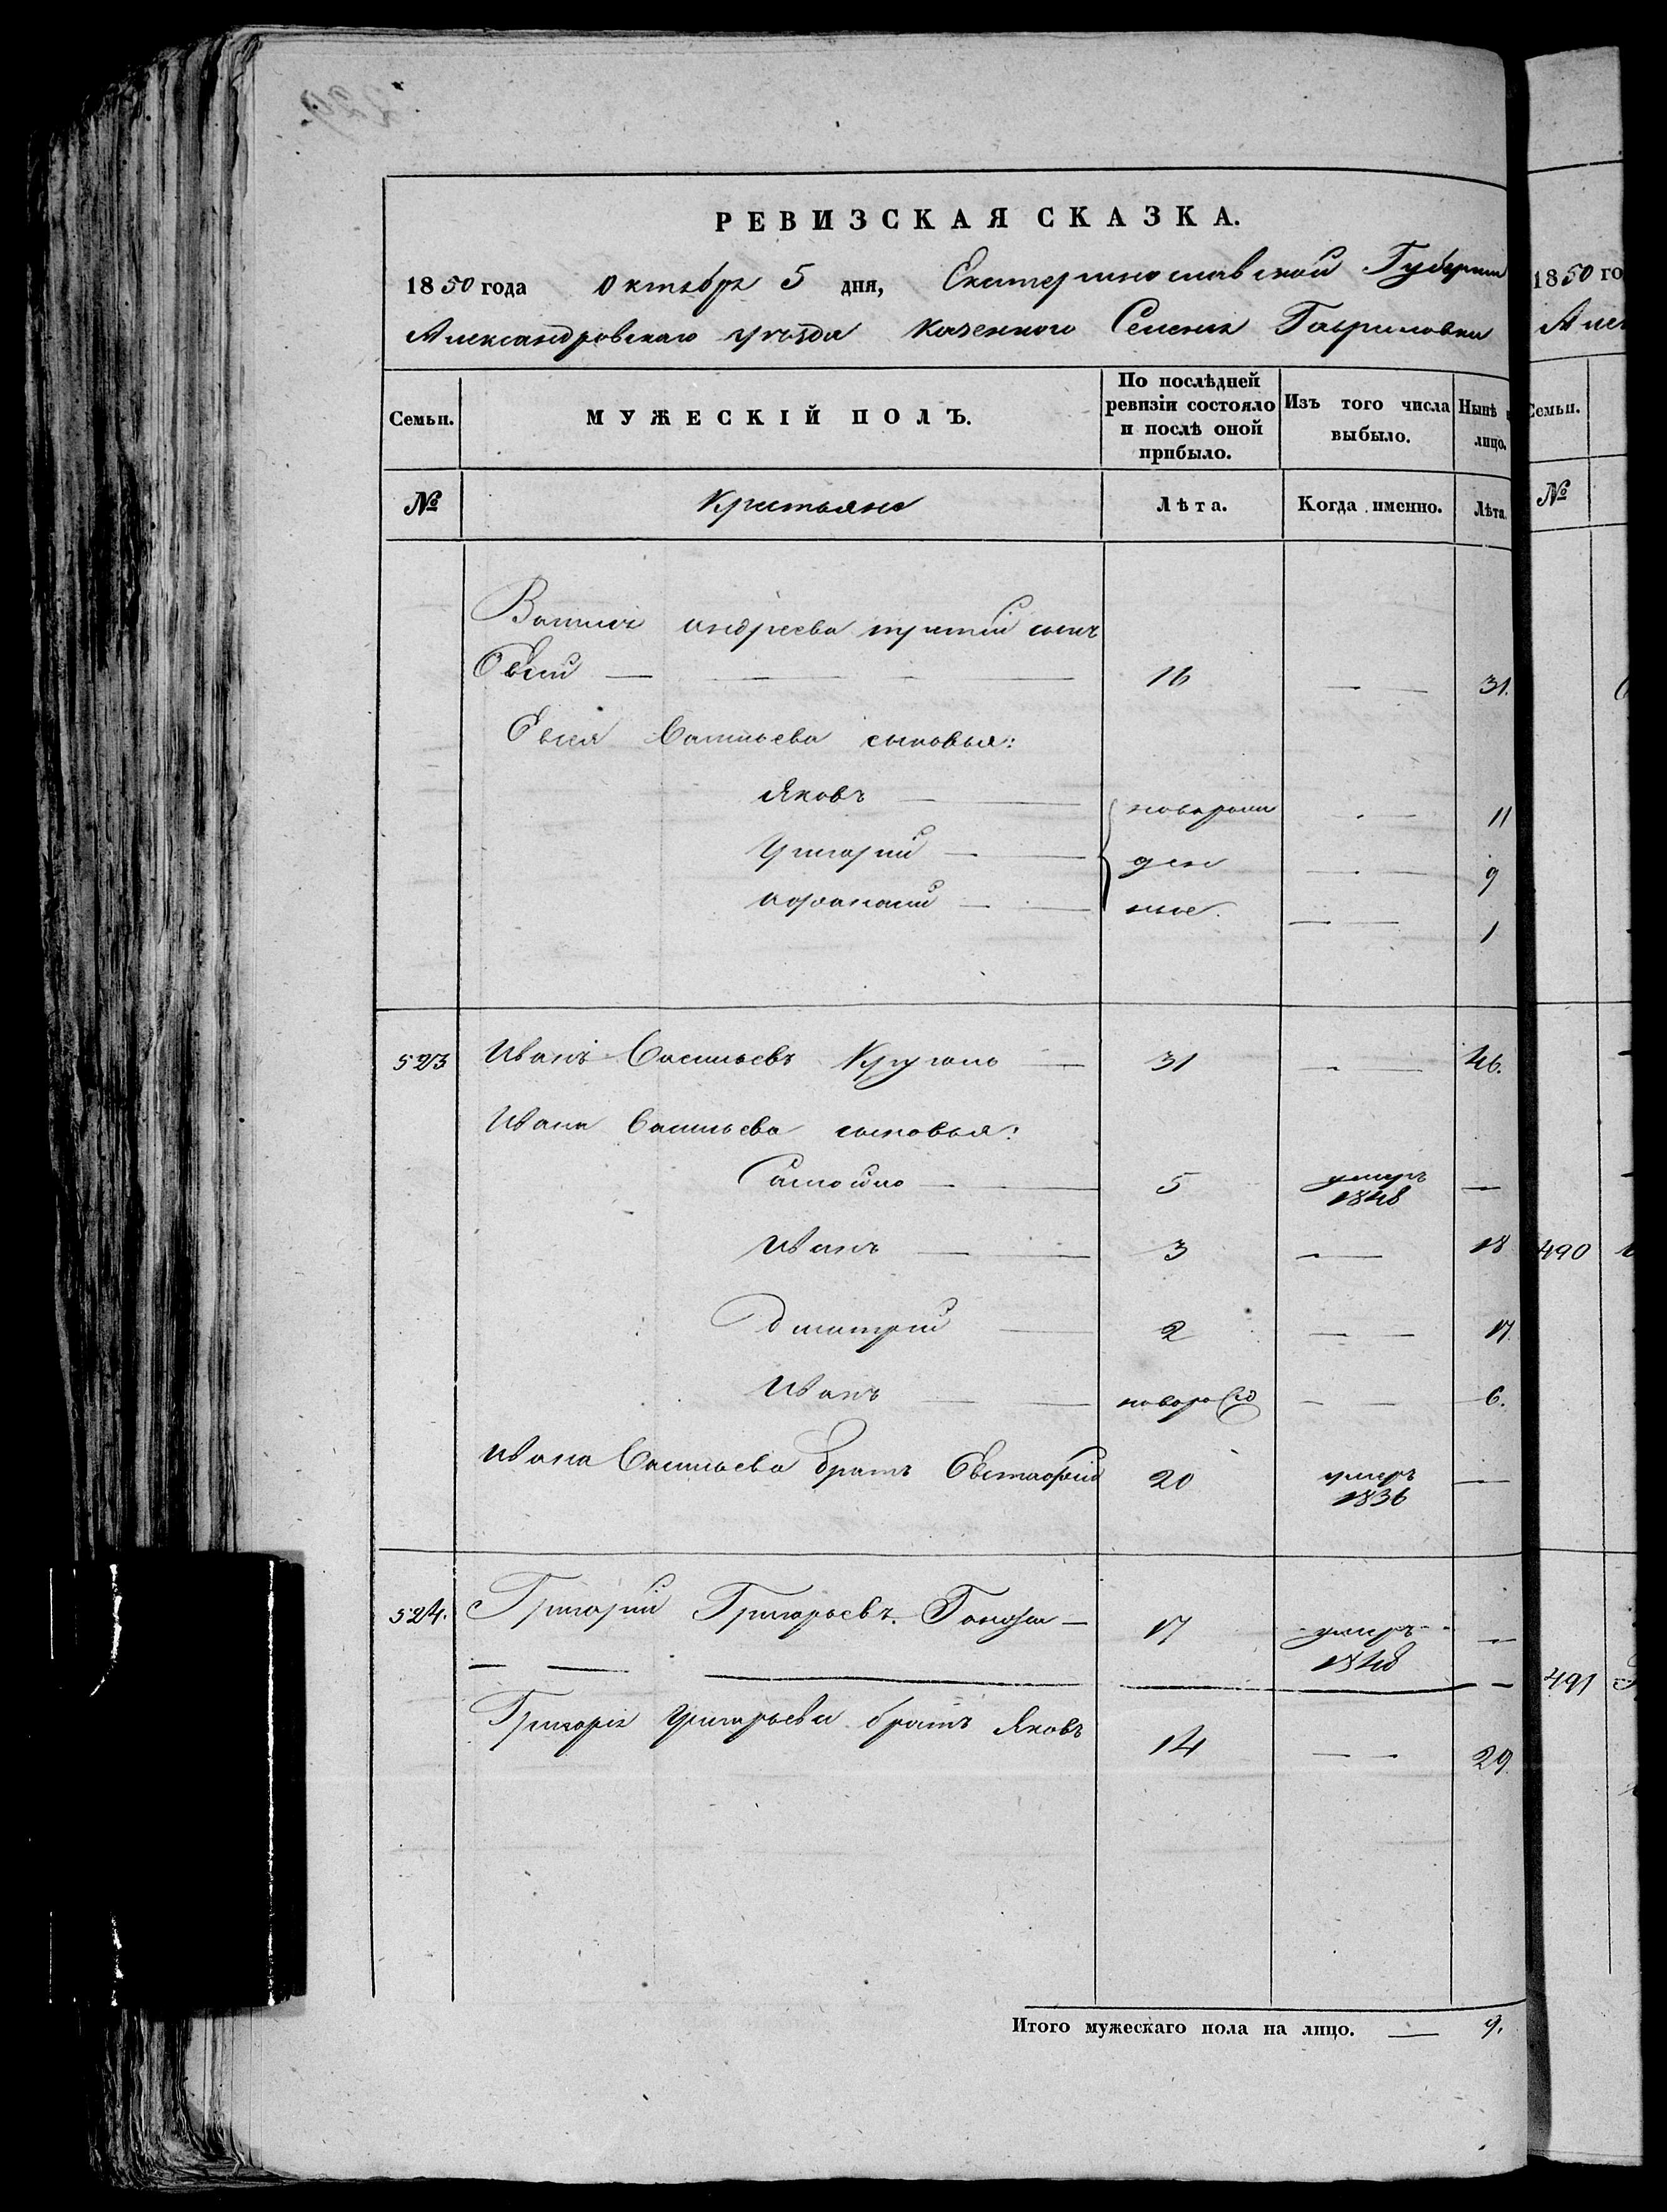 РЕВИЗСКАЯ СКАЗКА.
1850 года октября 5 дня, Екатеринославской Губернии
Александровскаго уѣзда казенного Селенія Гавриловки
Семьи. МУЖЕСКІЙ ПОЛЪ. По послѣдней ревизіи состояло и послѣ оной прибыло. Изъ того числа выбыло. Нынѣ лицо.
№ Крестьяне Лѣта. Когда именно. Лѣта.
андреева третій сынъ
Евсей — 16 — 31.
Евсея Васильева сыновья:
Яковъ — новорож — 11
Григорій — ден — 9
Афанасій — ные. — 1
523 Иванъ Васильевъ — 31 — 46.
Ивана Васильева сыновья:
5 умеръ 1848 —
Иванъ — 3 — 18
Дмитрій — 2 — 17.
Иванъ — новорожд — 6.
Ивана Васильева братъ Евстафій 20 умеръ 1836 —
524. Григорій Григорьевъ — 17 умеръ 1848 —
Григорія Григорьева братъ Яковъ 14 — 29.
Итого мужескаго пола на лицо. — 9.
1850 го
Семьи.
№
490
491